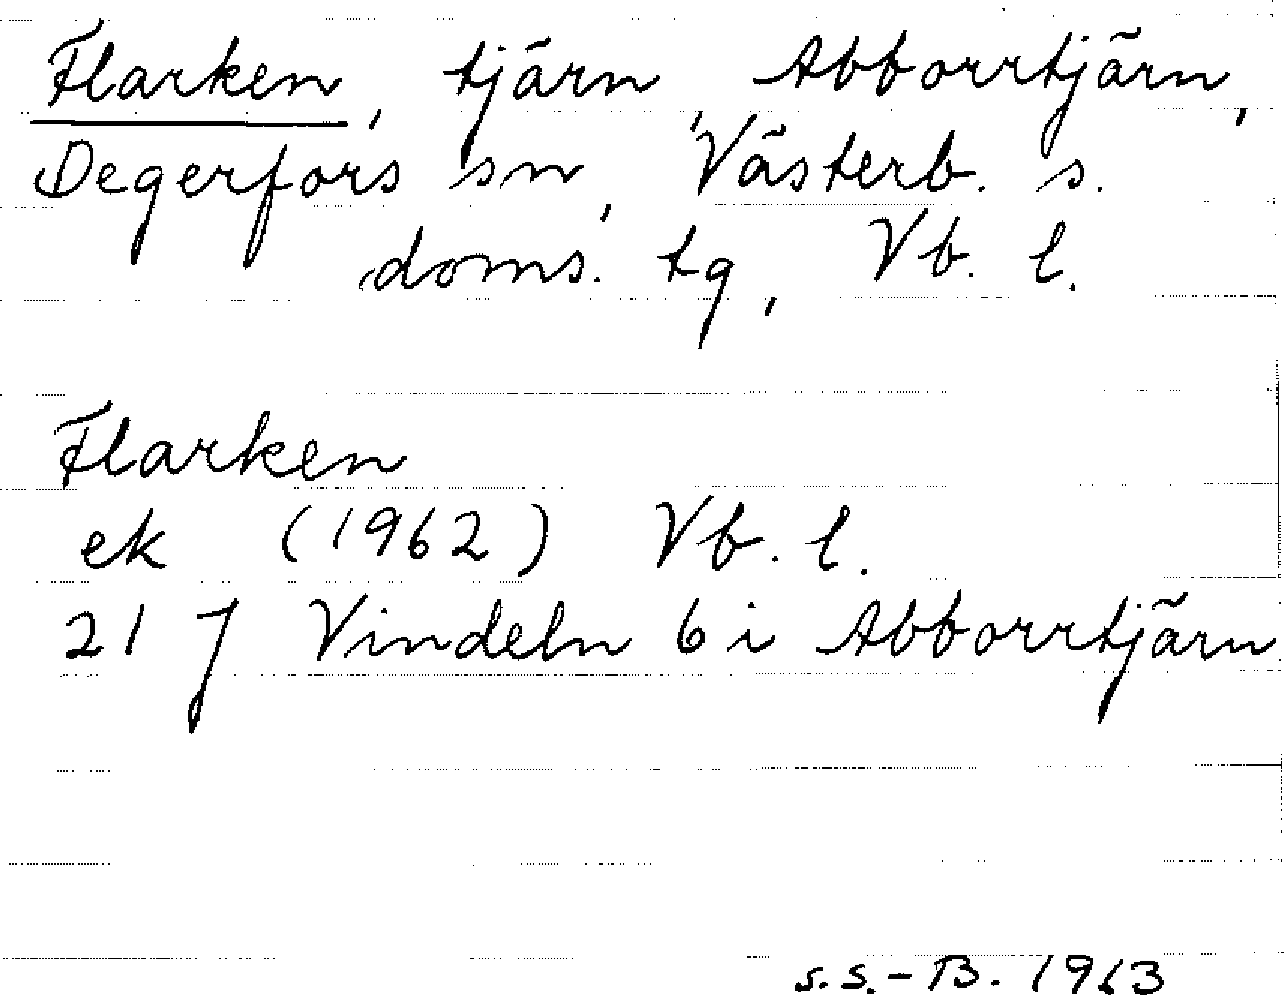 Flarken, tjärn, Abborrtjärn,
Degerfors sn, Västerb. s.
doms. tg, Vb. l.
Flarken
ek (1962) Vb. l.
21 J Vindeln 6 i Abborrtjärn
s.s.-B. 1963